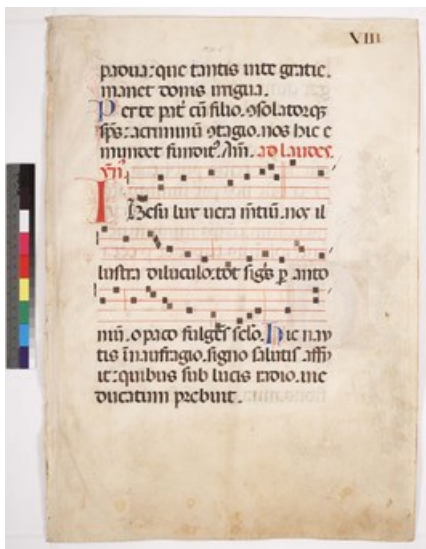 VIII
padua: que tantis in te gratie.
manet donis irrigua.
Per te pat̃ cũ filio. ꝯsolatorqꝫ
sp̃s: a criminũ ꝯtagio. nos hic e
mundet funditꝰ. Am̃. ad laudes.
ym̃.
Ihesu lux uera mẽtiũ. nox il
lustra diluculo. tot sigĩs p̱ anto
niũ. opaco fulgẽs sclo. Hic nau
tis ĩ naufragio. signo salutis aff
it: quibus sub lucis radio. iue
ducatum prebuit.